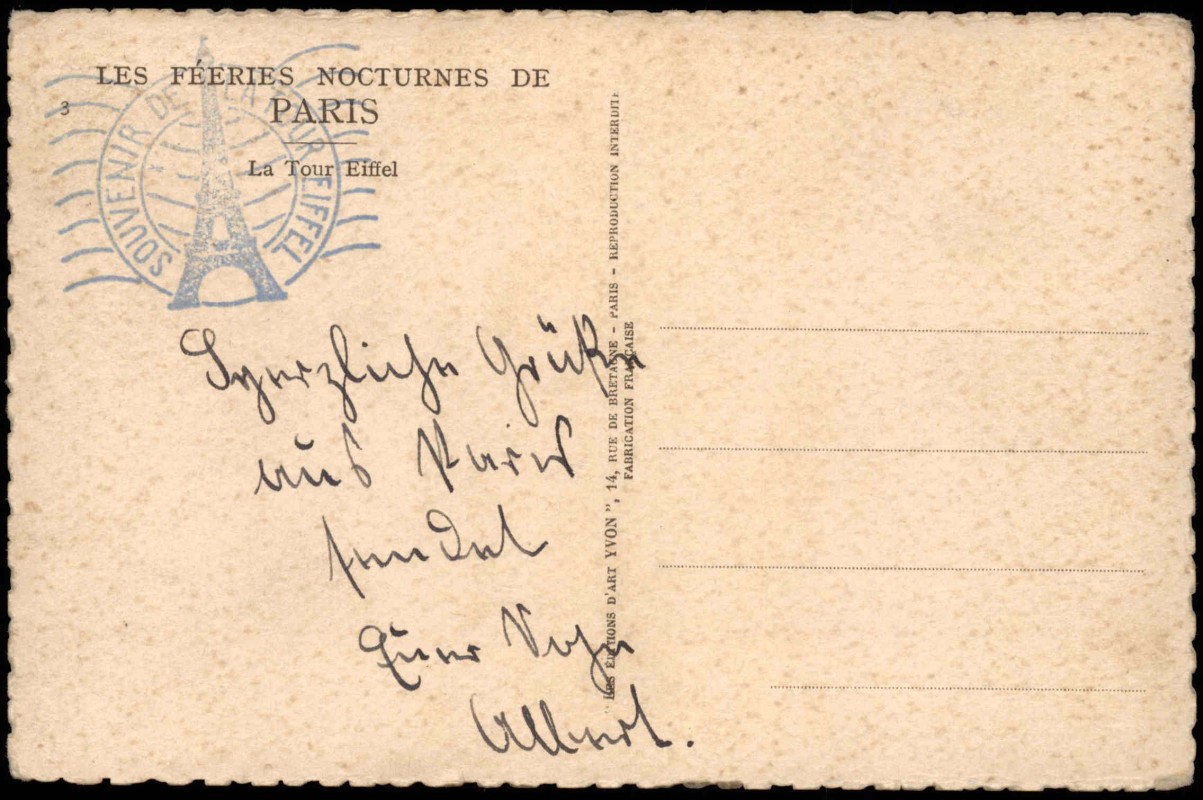 LES FÉERIES NOCTURNES DE
PARIS
3
La Tour Eiffel
SOUVENIR DE LA TOUR EIFFEL
Herzliche Grüße
aus Paris
sendet
Euer Sohn
Albert.
"LES ÉDITIONS D'ART YVON", 14, RUE DE BRETAGNE - PARIS - REPRODUCTION INTERDITE
FABRICATION FRANÇAISE